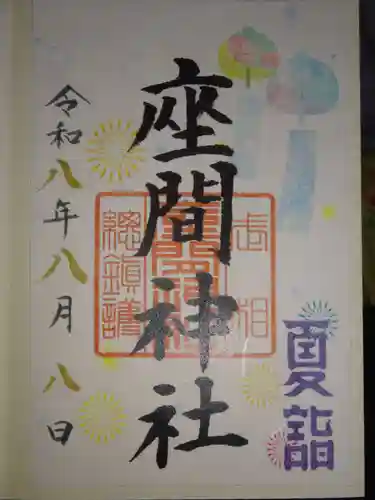 夏詣
座間神社
令和八年八月八日